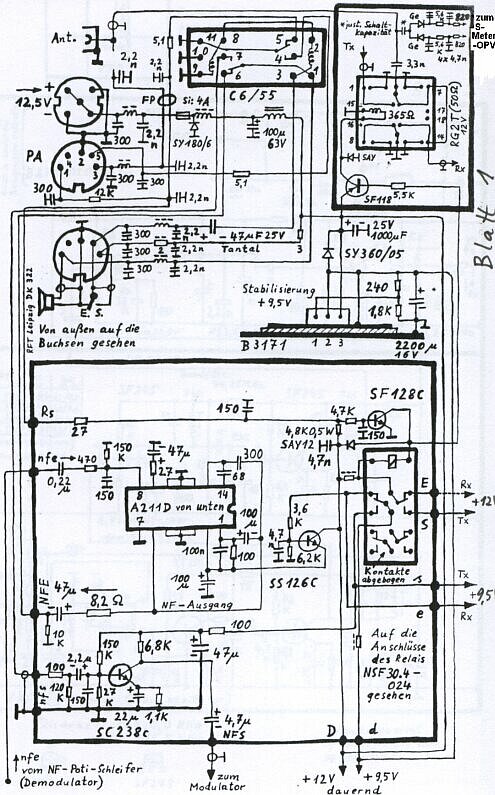 Ant.
12,5V
PA
2,2n
5,1
FP
Si: 4A
SY180/6
100µ
63V
C6/55
11
8
5
2
10
7
4
9
6
3
1
just. Schalt-
kapazität
Ge
Ge
5k
820
5,6k
820
4x4,7n
zum
S-
Meter
-OPV
Tx
3,3n
1
7
15
17
365Ω
16
18
8
14
RG2T(50Ω)
Rx
SAY
SF118
5,5K
Blatt 1
300
12K
300
2,2n
2,2n
5,1
300
2,2n
300
2,2n
300
2,2n
47µF 25V
Tantal
3
25V
1000µF
SY360/05
Stabilisierung
+9,5V
240
1,8K
B3171
1 2 3
2200µ
16V
RFT Leipzig DK 322
E. S.
Von außen auf die
Buchsen gesehen
Rs
27
150
4,7K
SF128c
4,8K0,5W
150
SAY12
4,7n
nfe
470
0,22
µ
150
K
150
47µ
27
300
68
8
14
A211D von unten
7
1
100
µ
100n
100
100µ
3,6
K
4,7
n
6,2K
SS126C
E
Rx
+12V
S
Tx
Kontakte
abgebogen
s
Tx
+9,5V
e
Rx
NFE
47µ
8,2Ω
10
K
NF-Ausgang
100
nfs
100
120
2,2µ
150
150
K
27
K
6,8K
22µ
1,1K
47µ
4,7µ
NFS
SC238c
Auf die
Anschlüsse
des Relais
NSF30.4-
024
gesehen
D
d
nfe
vom NF-Poti-Schleifer
(Demodulator)
zum
Modulator
+12V
+9,5V
dauernd